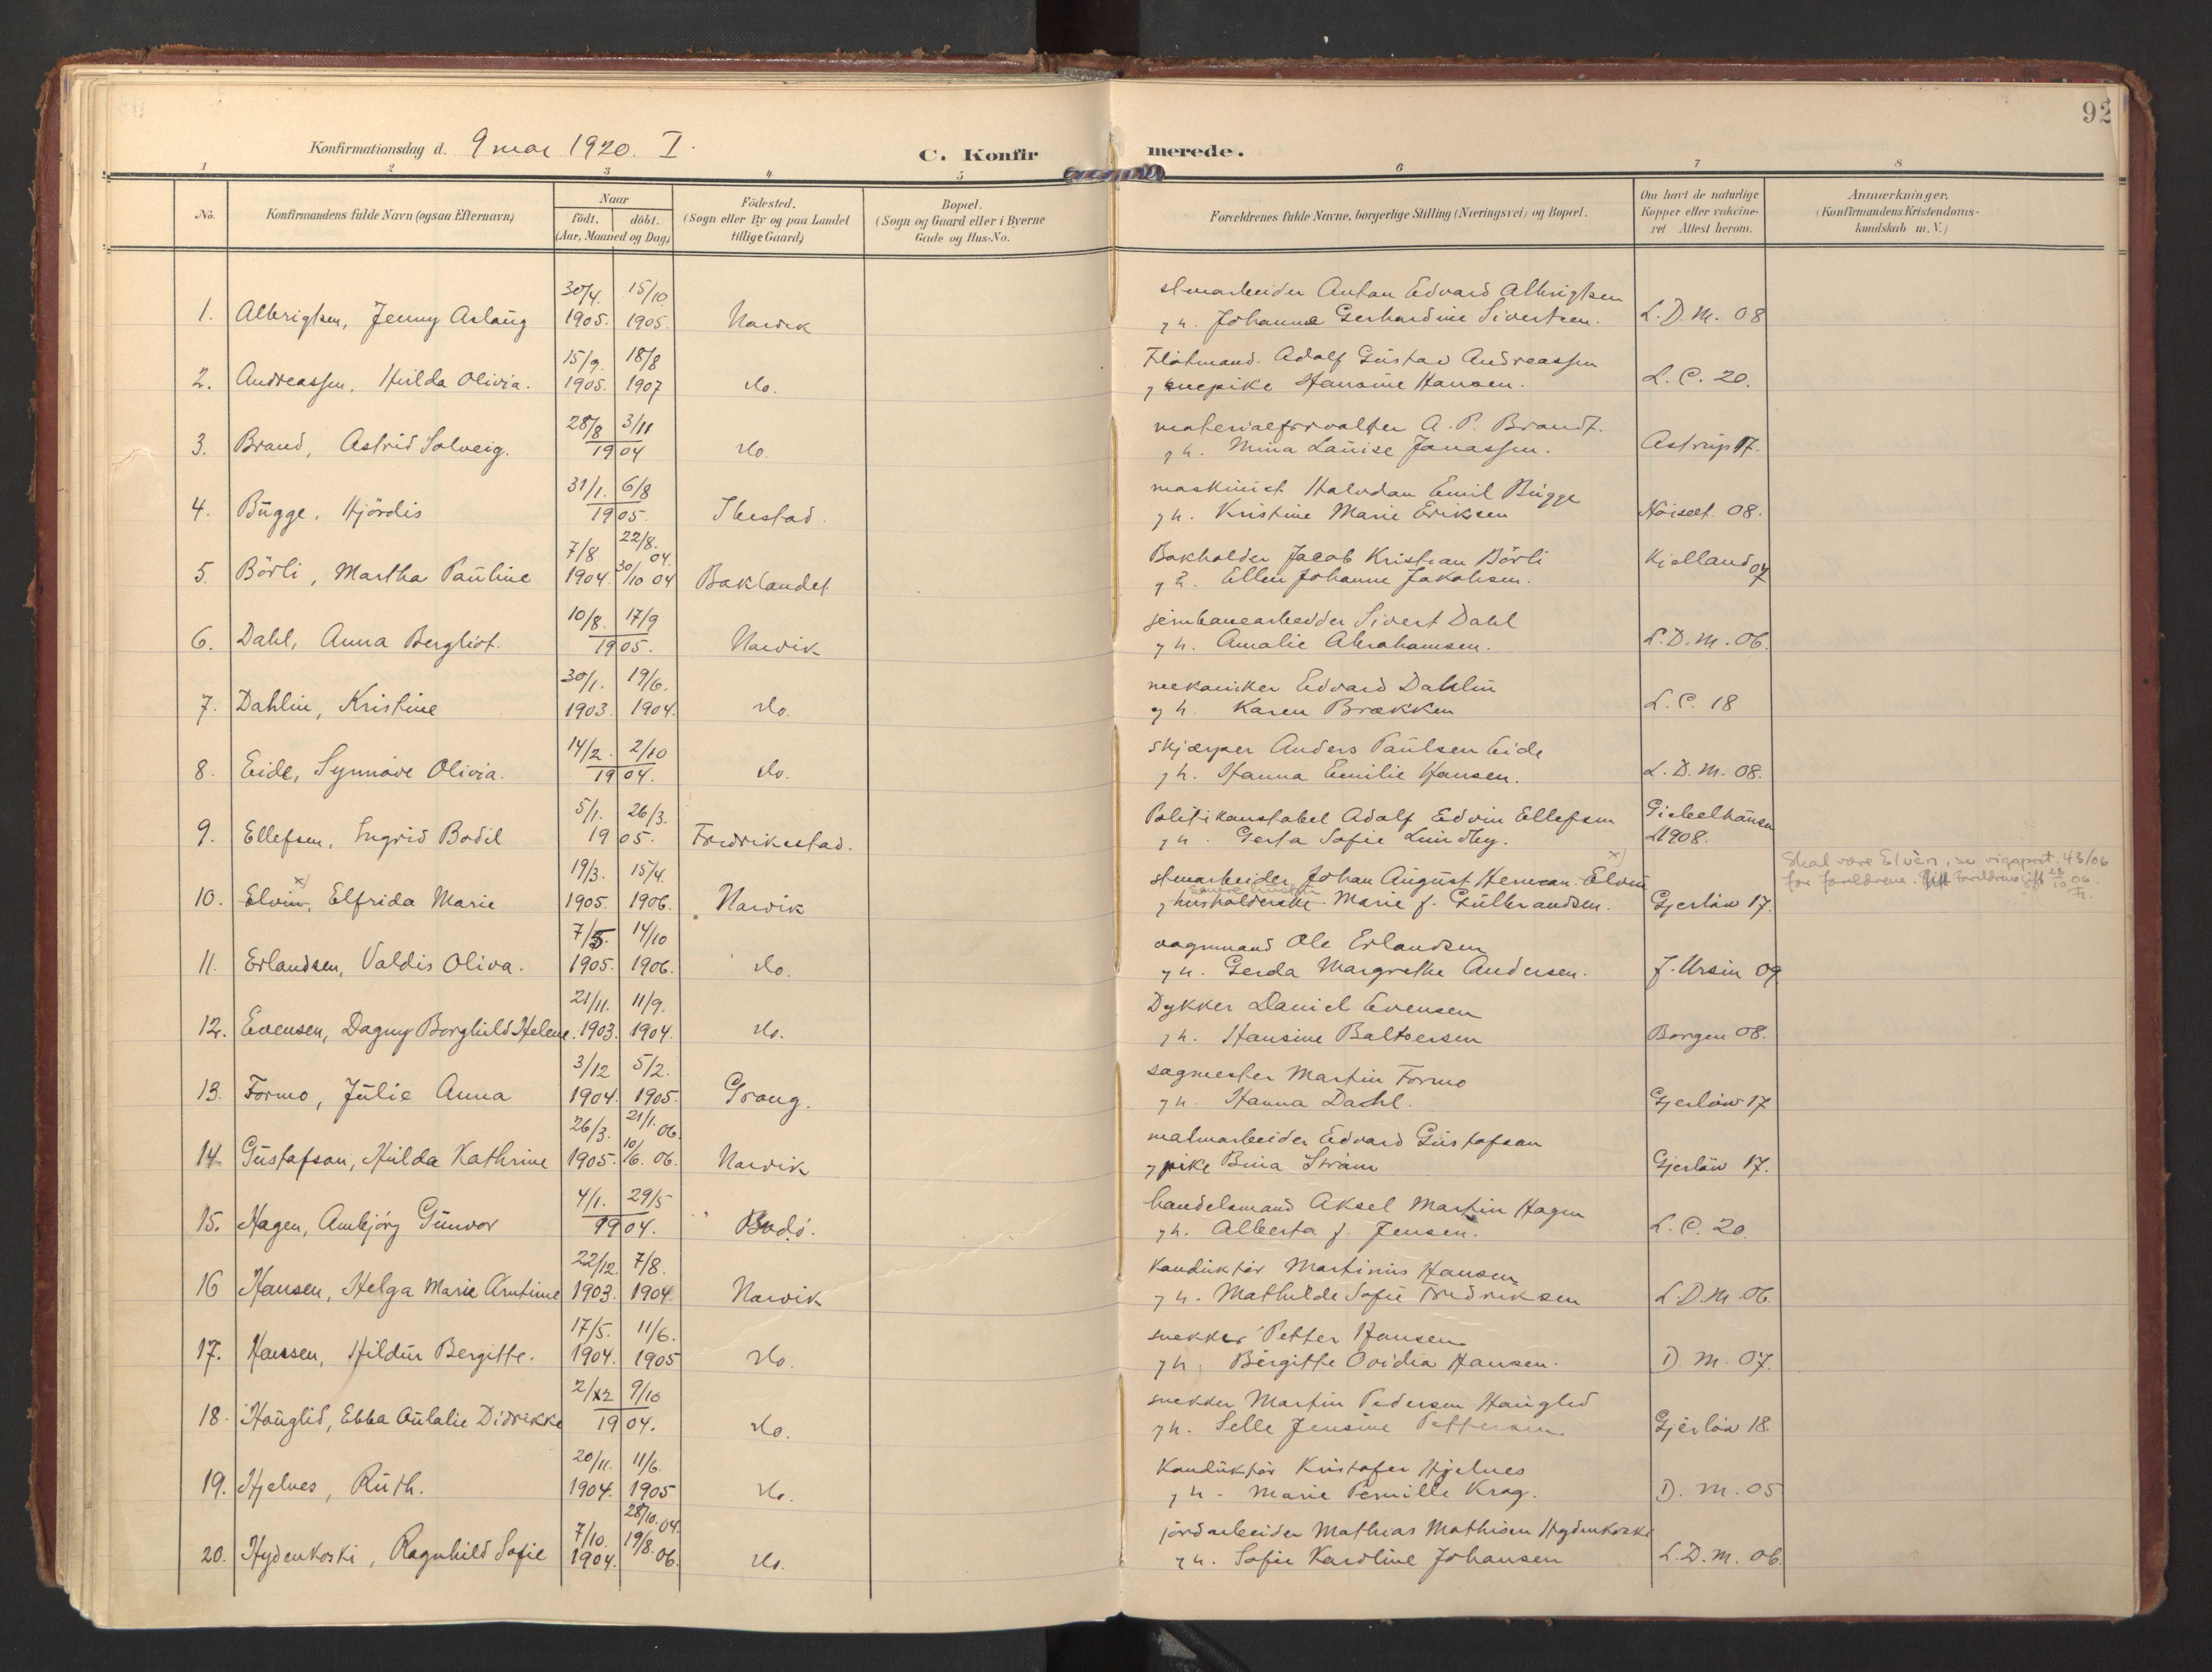 92
Konfirmationsdag d. 9 mai 1920. I.
C. Konfirmerede.
1 2 3 4 5 6 7 8
No.
Konfirmandens fulde Navn (ogsaa Efternavn)
Naar
født. døbt.
(Aar, Maaned og Dag)
Fødested.
(Sogn eller By og paa Landet
tillige Gaard)
Bopæl.
(Sogn og Gaard eller i Byerne
Gade og Hus-No.
Forældrenes fulde Navne, borgerlige Stilling (Næringsvei) og Bopæl.
Om havt de naturlige
Kopper eller vakcine-
ret Attest herom.
Anmærkninger,
(Konfirmandens Kristendoms-
kundskab m. V.)
30/4. 15/10 Anton Edvard Albrigtsen
1. Albrigtsen, Jenny Aslaug 1905. 1905. Narvik g h. Johanna Gerhardine Sivertsen. L. D. M. 08
15/9. 18/8 Adolf Gustav Andreassen
2. Andreassen, Hulda Olivia. 1905. 1907 do. g enepike Hansine Hansen. L. C. 20.
28/8 3/11 materialforvalter A. P. Brandt.
3. Brand, Astrid Solveig. 1904 do. g h. Mina Lauise Jonassen. Astrup 17.
31/1. 6/8 maskinist Halvdan Emil Bugge
4. Bugge, Hjördis 1905. Ibestad. g h. Kristine Marie Eriksen 08.
7/8 22/8. 04. Bokholder Jacob Kristian Börli Kjelland 07
5. Börli, Martha Pauline 1904. 30/10 04 Baklandet g h. Ellen Johanne Jakobsen.
10/8. 17/9 jernbanearbeider Sivert Dahl
6. Dahl, Anna Bergliot. 1905. Narvik g h. Amalie Abrahamsen. L. D. M. 06.
30/1. 19/6. mekaniker Edvard Dahlin
7. Dahlin, Kristine 1903. 1904. do. g h. Karen Brækken L. C. 18
14/2. 2/10 Anders Paulsen Eide
8. Eide, Synnöve Olivia. 1904. do. g h. Hanna Emilie Hansen. L. D. M. 08.
5/1. 26/3. Politikonstabel Adolf Edvin Ellefsen Giebelhausen
9. Ellefsen, Ingrid Bodil 1905. Fredrikstad. g h. Gerta Sofie Lundby. 1908.
19/3. 15/4. Johan August Herman Elvin x) Skal være Elvén, se vigsprot. 43/06
10. Elvin x), Elfrida Marie 1905. 1906. Narvik g husholderske Marie f. Gulbrandsen. Gjerlöw 17. for foreldrene. Foreldrene gift 28/10 06.
7/5. 14/10 vognmand Ole Erlandsen
11. Erlandsen, Valdis Oliva. 1905. 1906. do. g h. Gerda Margrethe Andersen. J. Ursin 09
21/11. 11/9. Dykker Daniel Evensen
12. Evensen, Dagny Borghild Helene. 1903. 1904. do. g h. Hansine Baltsersen Borgen 08.
3/12 5/2. sagmester Martin Formo
13. Formo, Julie Anna 1904. 1905. Grong. g h. Hanna Dahl. Gjerlöw 17
26/3. 21/1. 06. malmarbeider Edvard Gustafson
14. Gustafson, Hulda Kathrine 1905. 10/6. 06. Narvik g pike Bina Ström Gjerlöw 17.
4/1. 29/5 handelsmand Aksel Martin Hagen
15. Hagen, Ambjörg Gunvor 1904. Bodö. g h. Alberta f. Jensen. L. C. 20.
22/12. 7/8. Konduktör Martinius Hansen
16 Hansen, Helga Marie Arntine 1903. 1904 Narvik g h. Mathilde Sofie Fredriksen L. D. M. 06.
17/5. 11/6. snekker Petter Hansen
17. Hansen, Hildur Bergitte. 1904. 1905 do. g h. Bergitte Ovidia Hansen. D. M. 07.
2/12 9/10 snekker Martin Pedersen Hauglid
18. Hauglid, Ebba Aulalie Didrikke 1904. do. g h. Selle Jensine Pettersen Gjerlöw 18.
20/11. 11/6. Konduktör Kristofer Hjelnes
19. Hjelnes, Ruth. 1904. 1905 do. g h. Marie Pernille Krog. D. M. 05
7/10. 28/10. 04. jordarbeider Mathias Mathisen Hydenkoski
20. Hydenkoski, Ragnhild Sofie 1904. 19/8. 06. do. g h. Sofie Karoline Johansen L. D. M. 06.